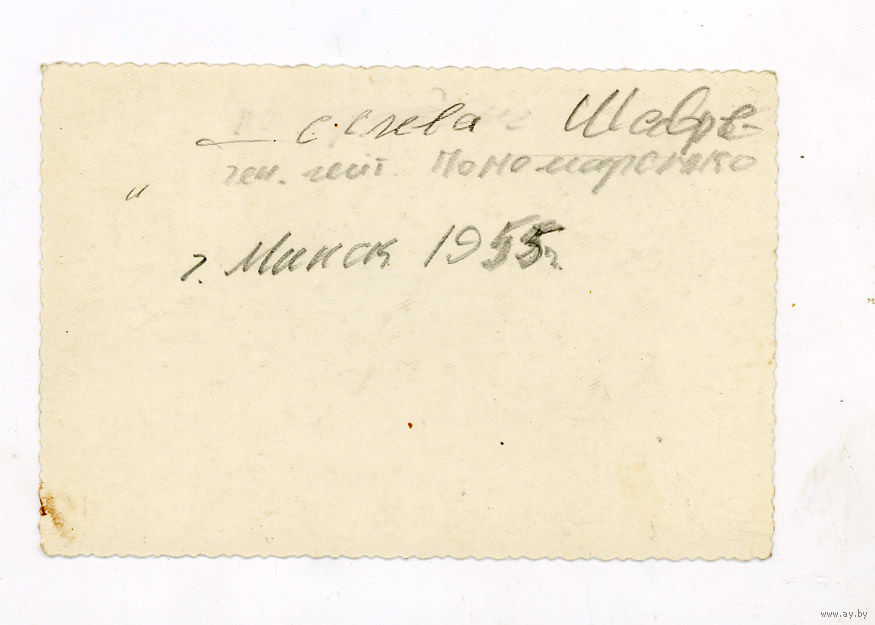 — с слева Шавров-
ген. лейт. Пономаренко
"
г. Минск 1955г.
www.ay.by